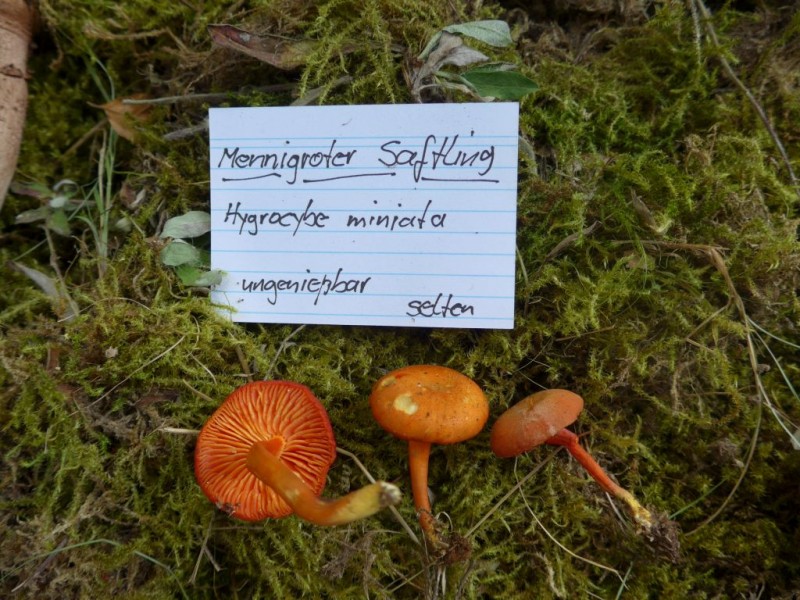 Mennigroter Saftling
Hygrocybe miniata
ungenießbar
selten